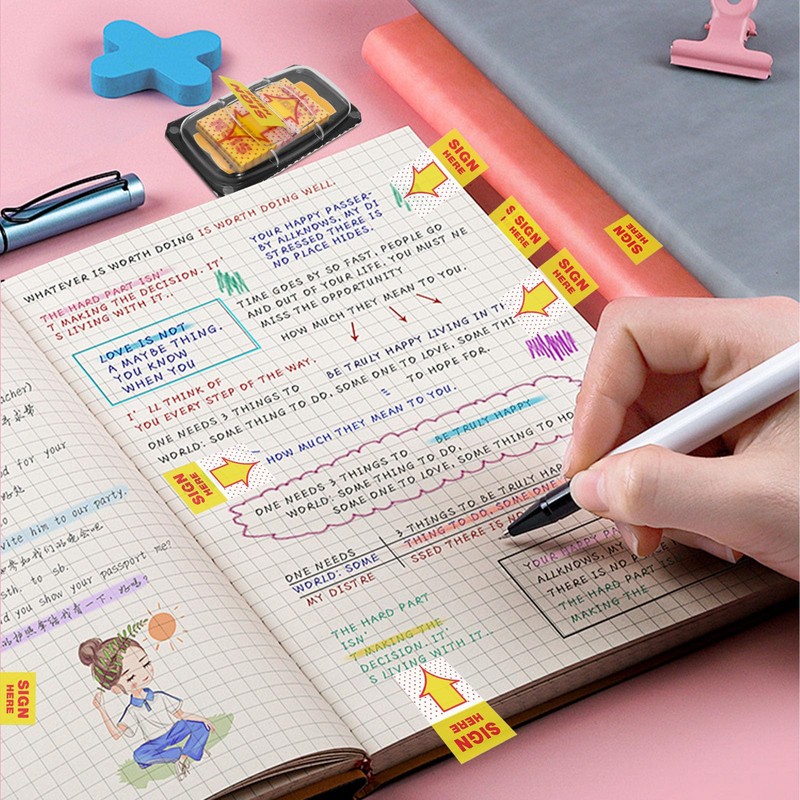 SIGN
SIGN
HERE
WHATEVER IS WORTH DOING IS WORTH DOING WELL.
YOUR HAPPY PASSER-
BY ALLKNOWS, MY DI
STRESSED THERE IS
NO PLACE HIDES.
S SIGN
HERE
SIGN
HERE
SIGN
HERE
THE HARD PART ISN'
T MAKING THE DECISION. IT'
S LIVING WITH IT...
TIME GOES BY SO FAST, PEOPLE GO
AND OUT OF YOUR LIFE. YOU MUST NE
MISS THE OPPORTUNITY
HOW MUCH THEY MEAN TO YOU.
LOVE IS NOT
A MAYBE THING.
YOU KNOW
WHEN YOU
I' LL THINK OF
YOU EVERY STEP OF THE WAY.
BE TRULY HAPPY LIVING IN TH
ONE NEEDS 3 THINGS TO
WORLD: SOME THING TO DO, SOME ONE TO LOVE, SOME THI
TO HOPE FOR.
HOW MUCH THEY MEAN TO YOU.
SIGN
HERE
BE TRULY HAPPY
ONE NEEDS 3 THINGS TO
WORLD: SOME THING TO DO,
SOME ONE TO LOVE, SOME THING TO HO
3 THINGS TO BE TRULY HAP
ONE NEEDS
THING TO DO, SOME ONE
WORLD: SOME
SSED THERE IS NO
MY DISTRE
YOUR HAPPY PA
ALLKNOWS, MY
THERE IS NO P
THE HARD PART IS
MAKING THE
THE HARD PART
ISN'
T MAKING THE
DECISION. IT'
S LIVING WITH IT...
SIGN
HERE
acher)
d for your
vite him to our party.
sth. to sb.
d you show your passport me?
SIGN
HERE